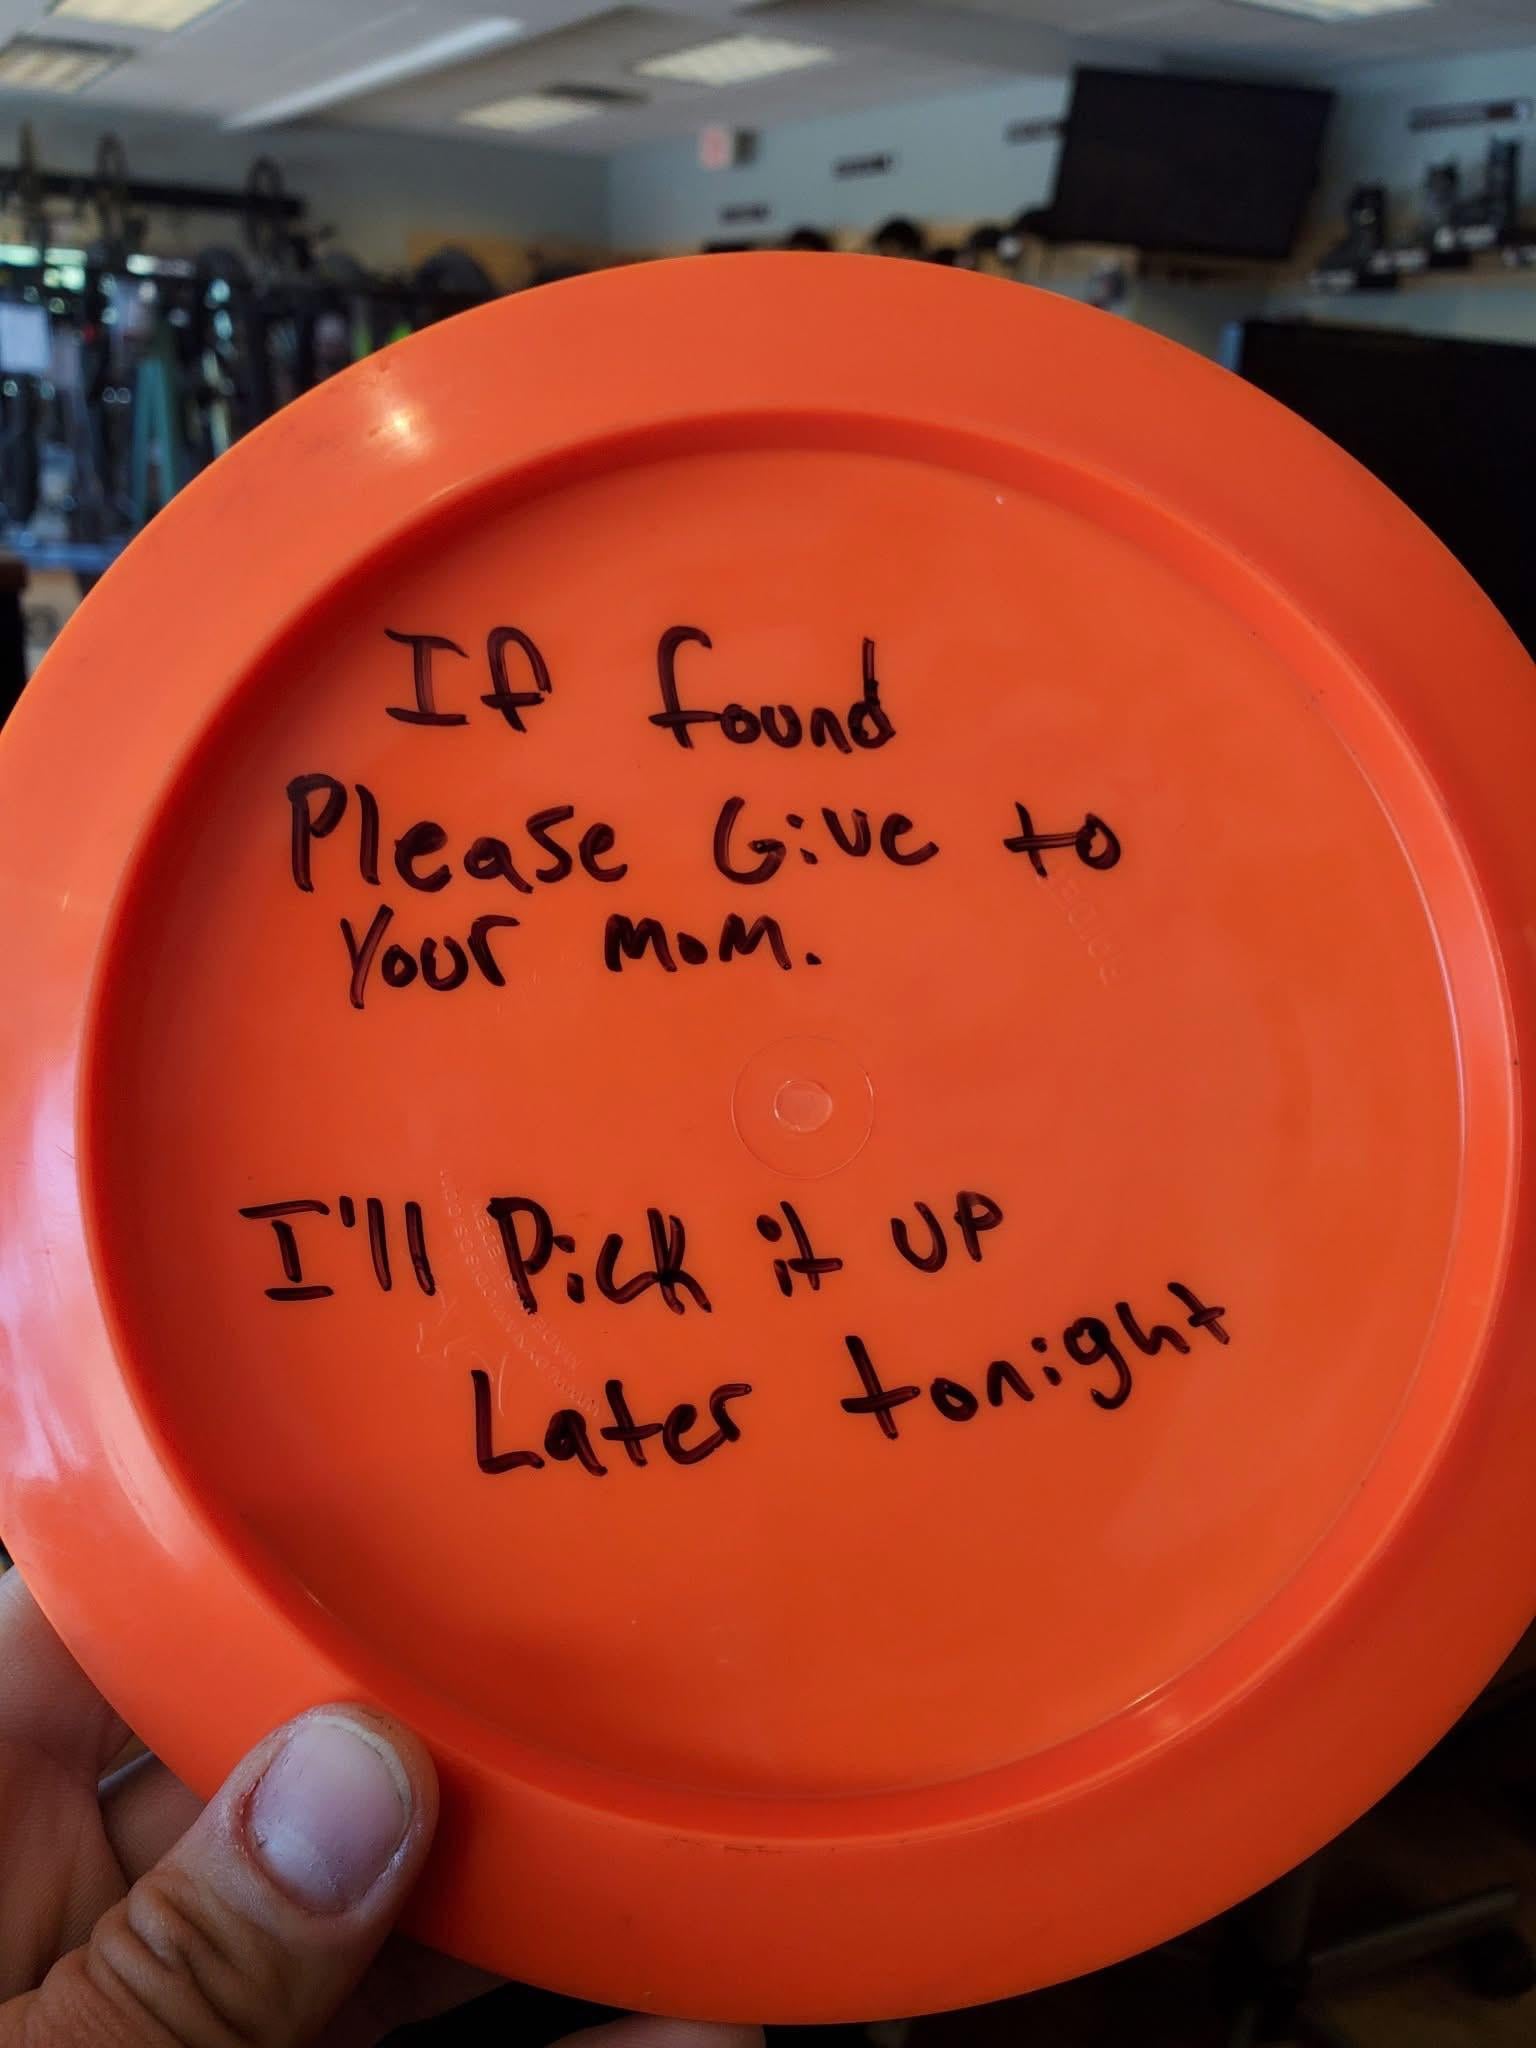 If found
Please Give to
Your mom.
I'll Pick it up
Later tonight